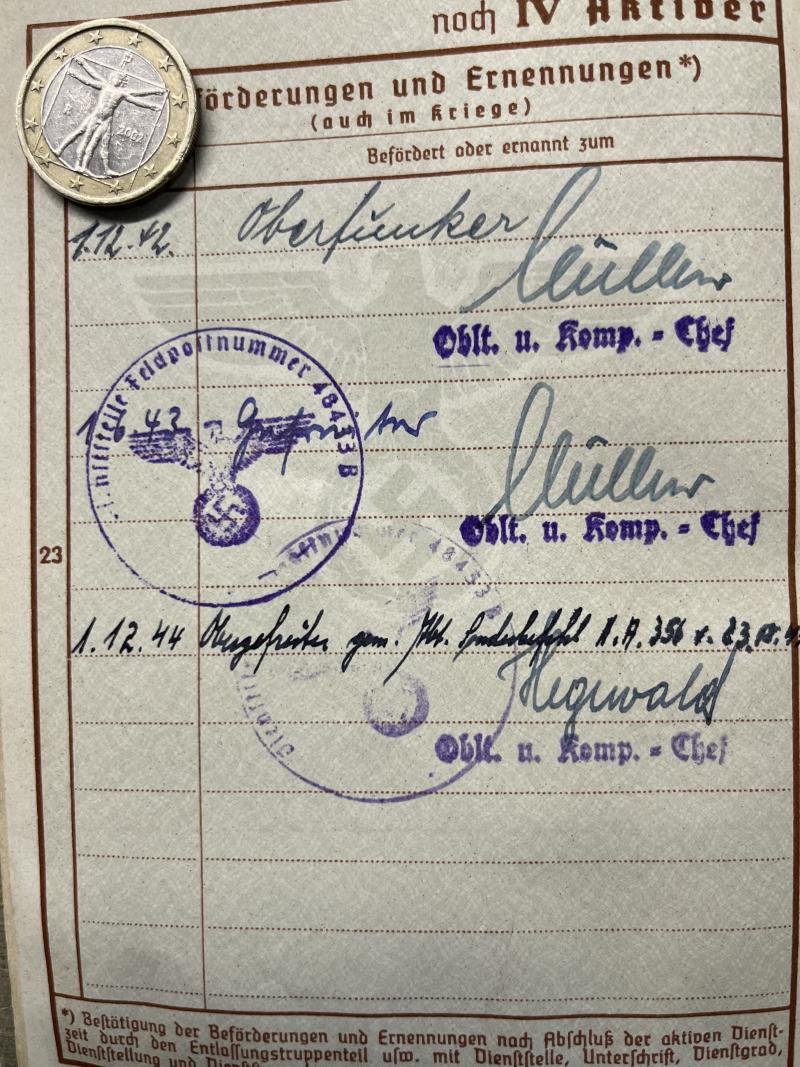 noch IV Aktiver
förderungen und Ernennungen*)
(auch im Kriege)
Befördert oder ernannt zum
2002
1.12.42. Oberfunker Müller
Oblt. u. Komp. - Chef
Feldpostnummer 48433 B
1.6.43 Müller
Oblt. u. Komp. - Chef
23
48433 B
1.12.44 Obergefreiter gem. Sonderbefehl 356 v. 23.
Hegewald
Oblt. u. Komp. - Chef
*) Bestätigung der Beförderungen und Ernennungen nach Abschluß der aktiven Dienst-
zeit durch den Entlassungstruppenteil usw. mit Dienststelle, Unterschrift, Dienstgrad,
Dienststellung und